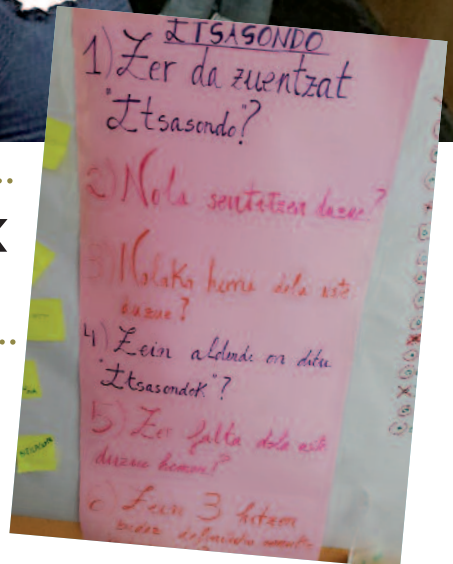 ITSASONDO
1) Zer da zuentzat
"Itsasondo"?
2) Nola sentitzen dezue?
3) Nolako herria dela uste
duzue?
4) Zein alderdi on ditu
"Itsasondok"?
5) Zer falta dela uste
duzue hemen?
Zein 3 hitzen
bidez definituko